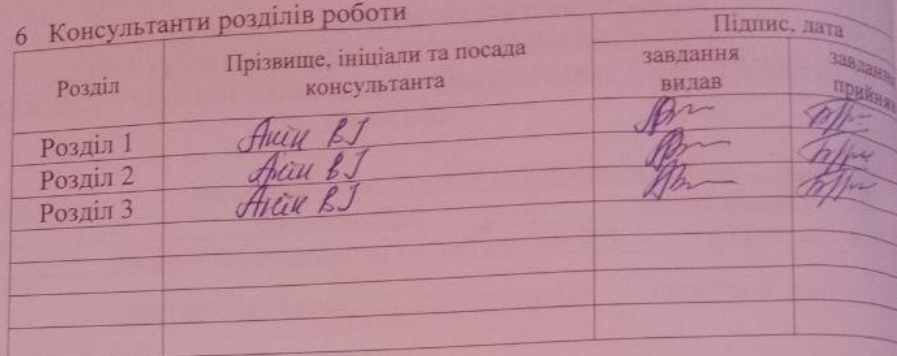 6 Консультанти розділів роботи
Розділ
Прізвище, ініціали та посада консультанта
Підпис, дата
завдання видав
завдання прийняв
Розділ 1 Анін ВІ
Розділ 2 Анін ВІ
Розділ 3 Анін ВІ